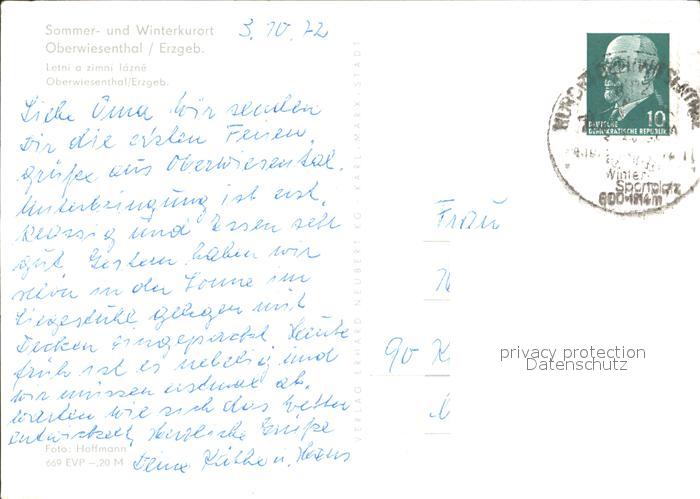 Sommer- und Winterkurort
Oberwiesenthal / Erzgeb.
Letni a zimni lázně
Oberwiesenthal/Erzgeb.
3.10.72
Liebe Oma wir senden
Dir die ersten Ferien
grüße aus Oberwiesental.
Unterbringung ist erst
klassig und Essen sehr
gut. Gestern haben wir
schon in der Sonne im
Liegestuhl gelegen mit
Decken eingepackt. Heute
früh ist es nebelig und
wir müssen erstmal ab
warten wie sich das Wetter
entwickelt. Herzliche Grüße
Deine Käthe u. Hans
Foto: Hoffmann
669 EVP -,20 M
VERLAG ERHARD NEUBERT KG KARL-MARX-STADT
10
DEUTSCHE
DEMOKRATISCHE REPUBLIK
KURORT OBERWIESENTHAL
Winter-
Sportplatz
Frau
90 K
privacy protection
Datenschutz